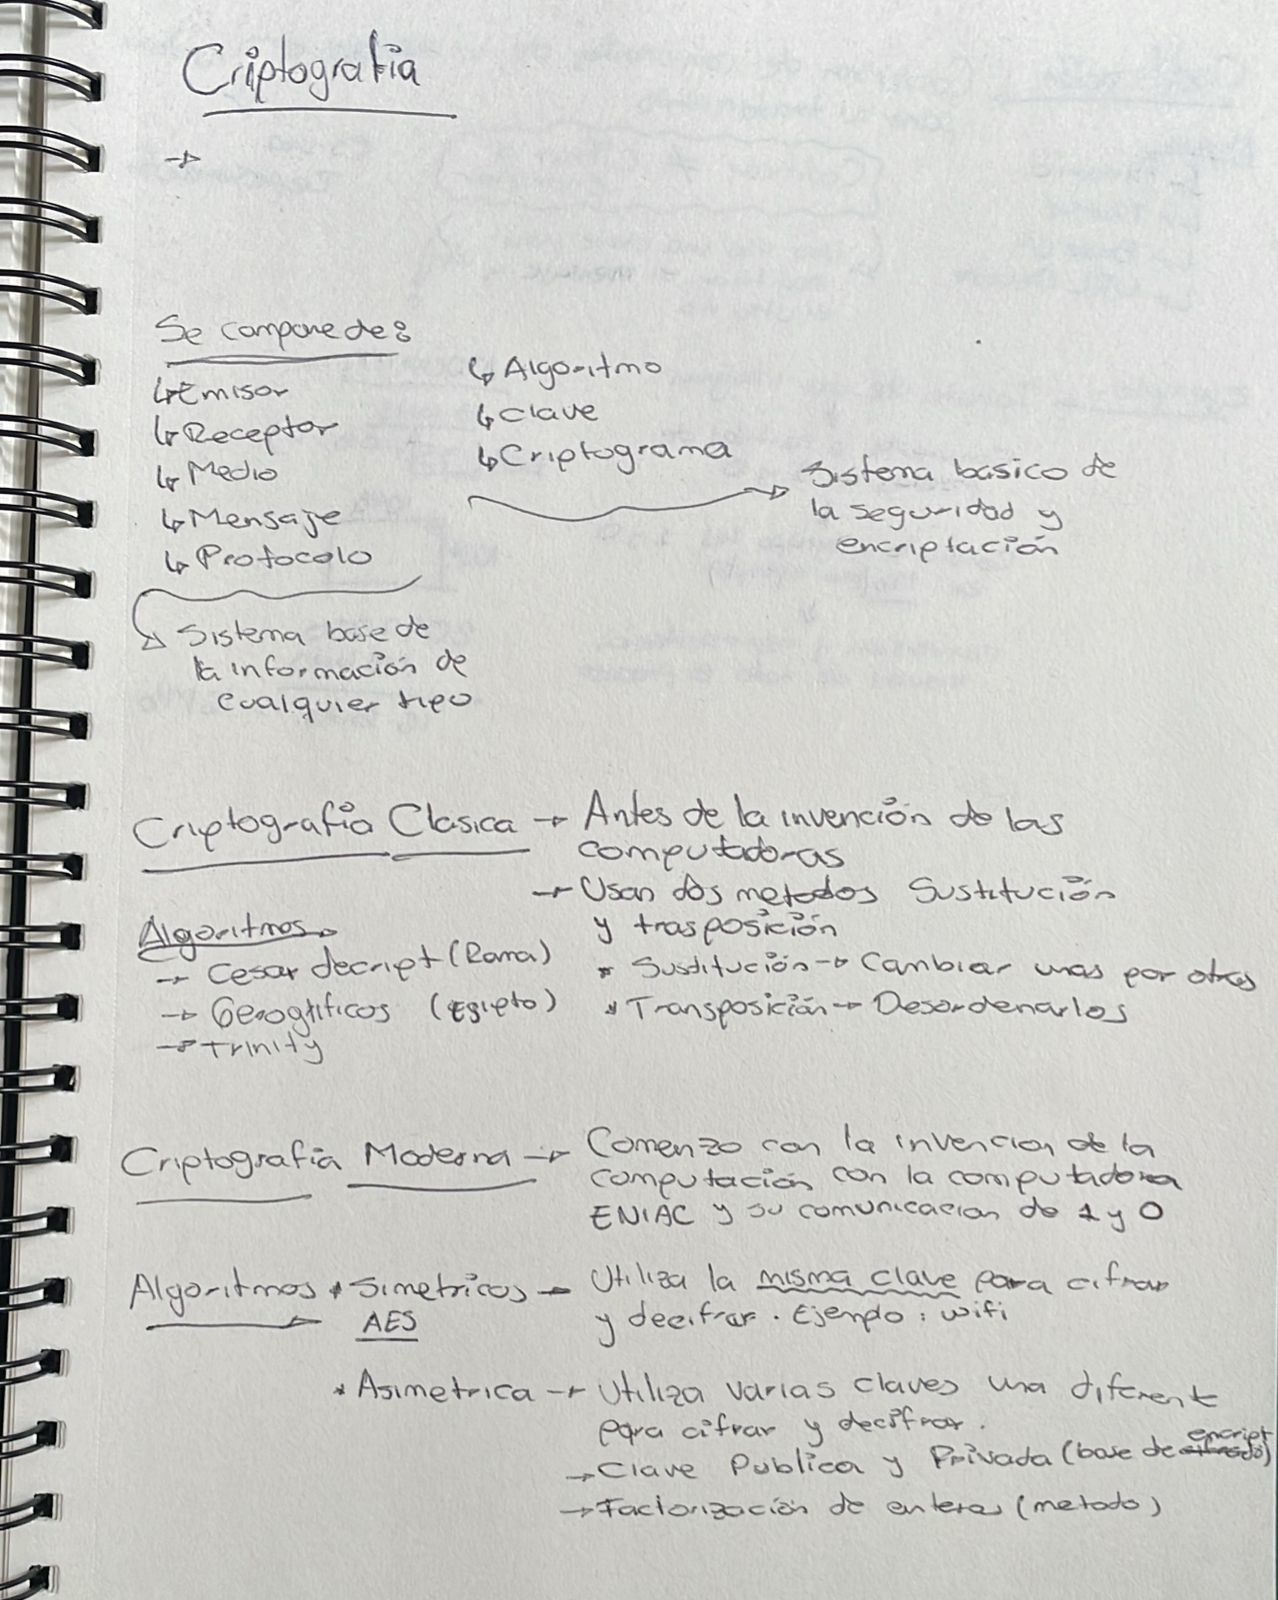 Criptografia
→
Se compone de:
↳ Emisor
↳ Receptor
↳ Medio
↳ Mensaje
↳ Protocolo
Sistema base de
la información de
cualquier tipo
↳ Algoritmo
↳ Clave
↳ Criptograma
Sistema basico de
la seguridad y
encriptación
Criptografia Clasica → Antes de la invención de las
computadoras
→ Usan dos metodos Sustitución
y trasposición
* Sustitución → Cambiar unas por otras
* Transposición → Desordenarlos
Algoritmos
→ Cesar decript (Roma)
→ Geroglificos (Egipto)
→ Trinity
Criptografia Moderna → Comenzo con la invencion de la
computación con la computadora
ENIAC y su comunicacion de 1 y 0
Algoritmos * Simetricos → Utiliza la misma clave para cifrar
AES
y decifrar. Ejemplo: wifi
* Asimetrica → Utiliza varias claves una diferente
para cifrar y decifrar.
→ Clave Publica y Privada (base de encript)
→ Factorización de enteros (metodo)